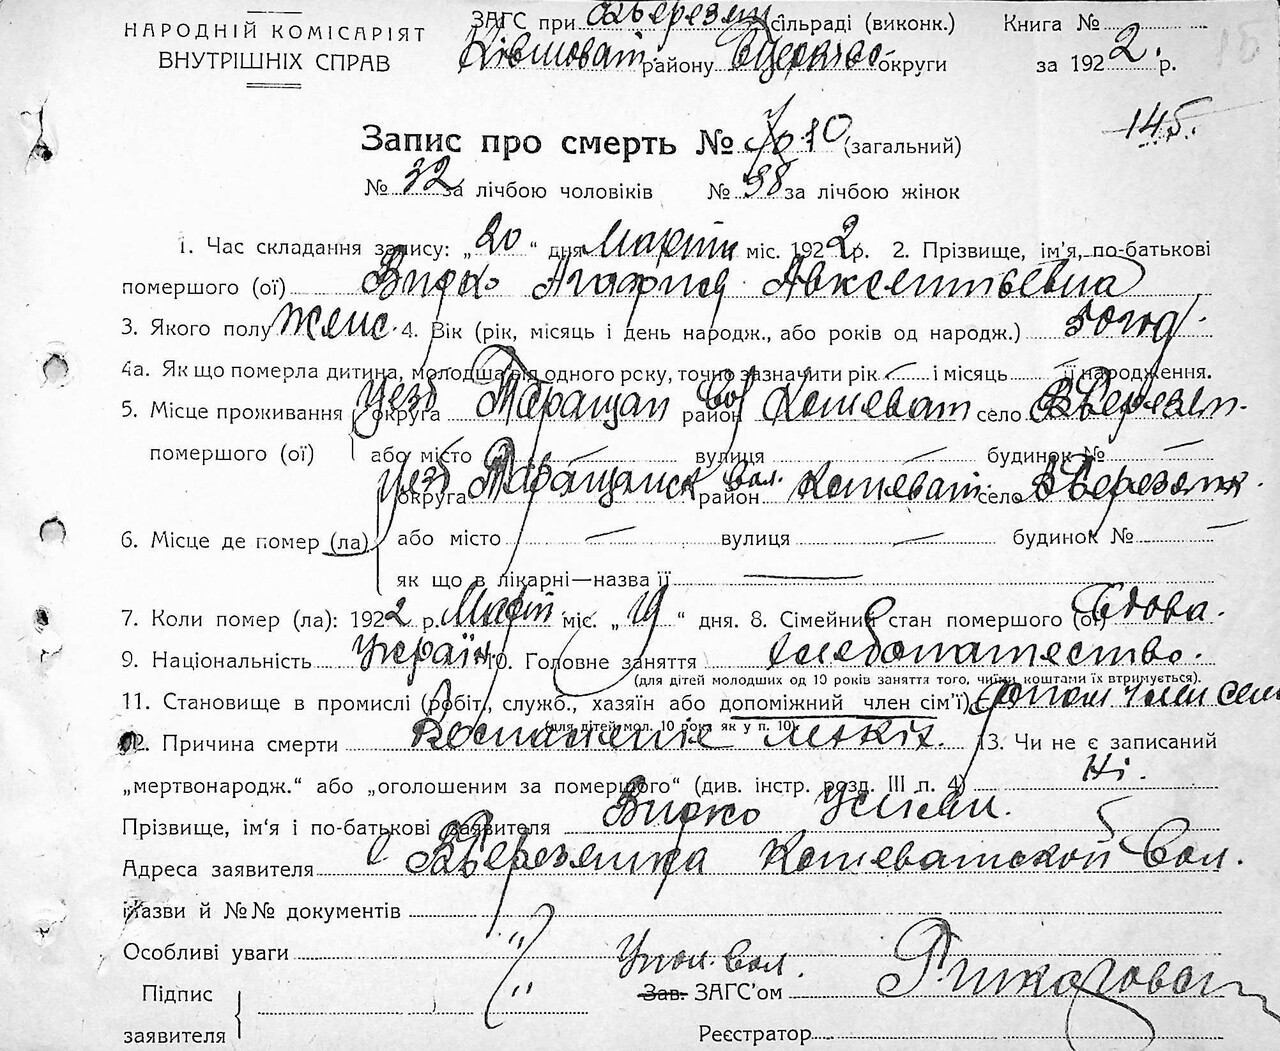 НАРОДНІЙ КОМІСАРІЯТ
ВНУТРІШНІХ СПРАВ
ЗАГС при сільраді (виконк.)
району округи
Книга №
за 1922 р.
145.
Запис про смерть № 10 (загальний)
№ 32 за лічбою чоловіків № 38 за лічбою жінок
1. Час складання запису: „20“ дня Марта міс. 1922 р. 2. Прізвище, ім’я, по-батькові
помершого (ої) Вирко Агафия Авксентьевна
3. Якого полу Женс. 4. Вік (рік, місяць і день народж., або років од народж.) 50 год.
4а. Як що померла дитина, молодша від одного рску, точно зазначити рік і місяць її народження.
5. Місце проживання уезд округа Таращан вол район Кошеват село Березян.
помершого (ої) або місто — вулиця — будинок № —
уезд округа Таращанск вол. район Кошеват. село Березянк.
6. Місце де помер (ла) або місто — вулиця — будинок № —
як що в лікарні—назва її —
7. Коли помер (ла): 1922 р. Март. міс. „ “ дня. 8. Сімейний стан помершого (ої) Вдова.
9. Національність Україн. 10. Головне заняття Хлебопашество.
(для дітей молодших од 10 років заняття того, чиїми коштами їх втримується).
11. Становище в промислі (робіт., служб., хазяїн або допоміжний член сім’ї) член сем
(для дітей мол. 10 рокз як у п. 10)
12. Причина смерти Воспаление легких. 13. Чи не є записаний
„мертвонародж.“ або „оголошеним за помершого“ (див. інстр. розд. III п. 4) Ні.
Прізвище, ім‘я і по-батькові заявителя Вирко
Адреса заявителя с Березянка Кошеватской Вол.
Назви й №№ документів
Особливі уваги "
Підпис
заявителя "
Упол. Вол.
Зав. ЗАГС’ом
Реєстратор